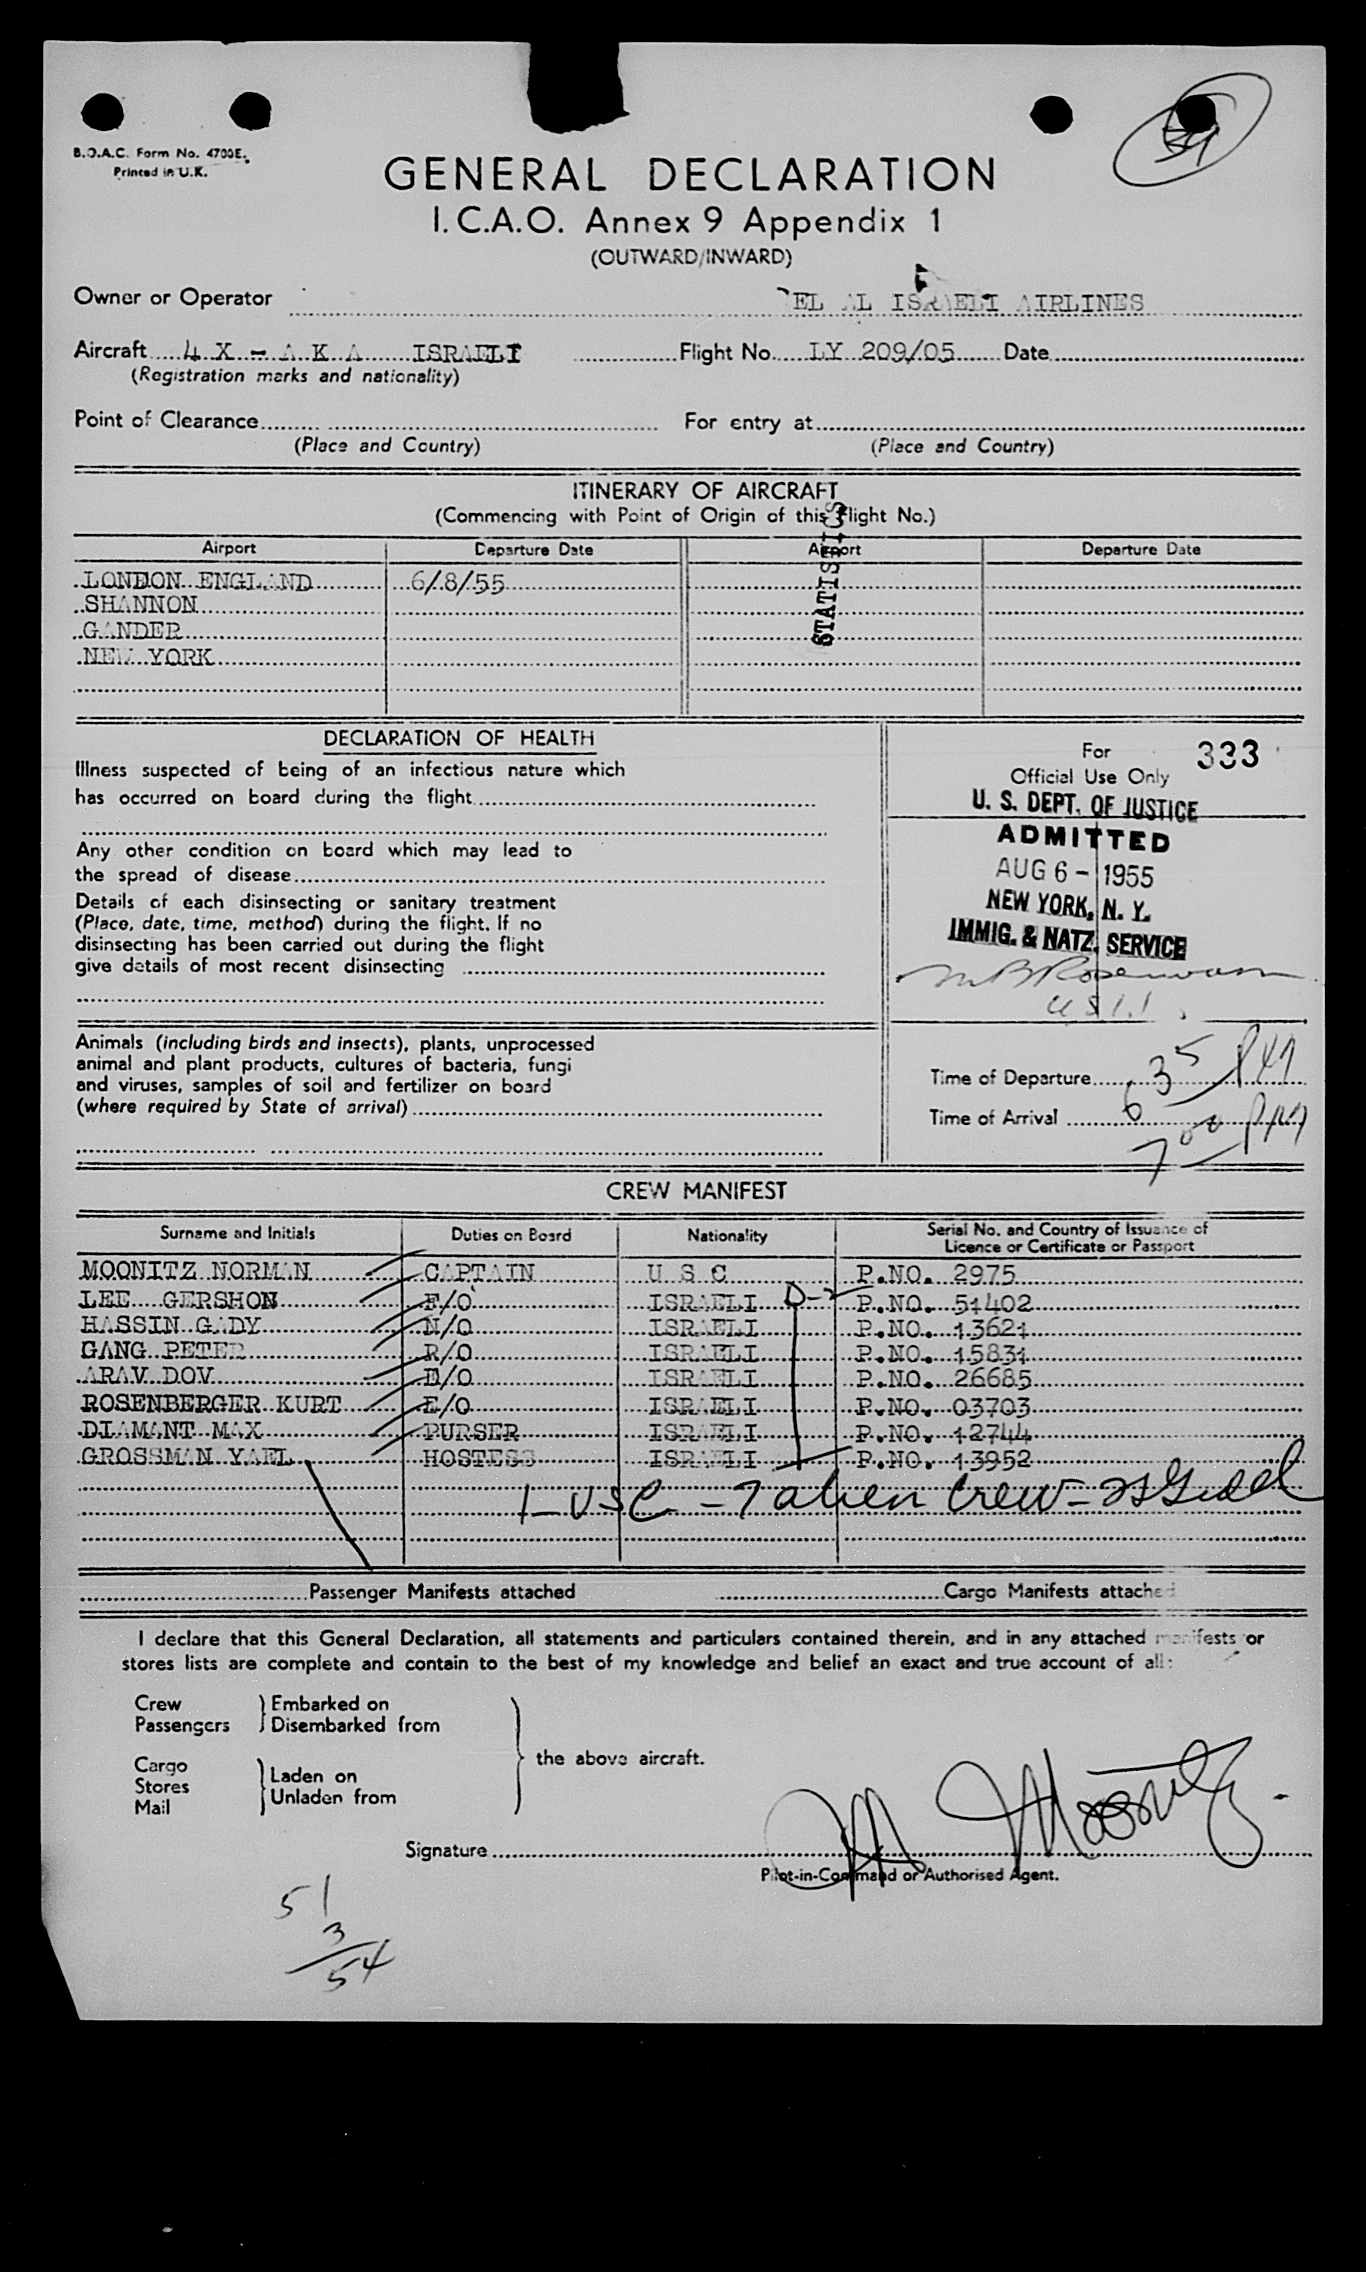 B.O.A.C. Form No. 4700E.
Printed in U.K.
GENERAL DECLARATION
I.C.A.O. Annex 9 Appendix 1
(OUTWARD/INWARD)
Owner or Operator EL AL ISRAELI AIRLINES
Aircraft 4 X - A K A ISRAELI Flight No. LY 209/05 Date
(Registration marks and nationality)
Point of Clearance For entry at
(Place and Country) (Place and Country)
ITINERARY OF AIRCRAFT
(Commencing with Point of Origin of this Flight No.)
STATISTICS
Airport Departure Date Airport Departure Date
LONDON ENGLAND 6/8/55
SHANNON
GANDER
NEW YORK
DECLARATION OF HEALTH
Illness suspected of being of an infectious nature which
has occurred on board during the flight
Any other condition on board which may lead to
the spread of disease
Details of each disinsecting or sanitary treatment
(Place, date, time, method) during the flight. If no
disinsecting has been carried out during the flight
give details of most recent disinsecting
Animals (including birds and insects), plants, unprocessed
animal and plant products, cultures of bacteria, fungi
and viruses, samples of soil and fertilizer on board
(where required by State of arrival)
For 333
Official Use Only
U. S. DEPT. OF JUSTICE
ADMITTED
AUG 6 - 1955
NEW YORK, N. Y.
IMMIG. & NATZ. SERVICE
Time of Departure 6 35 PM
Time of Arrival 7 00 PM
CREW MANIFEST
Surname and Initials Duties on Board Nationality Serial No. and Country of Issuance of Licence or Certificate or Passport
MOONITZ NORMAN CAPTAIN U S C P.NO. 2975
LEE GERSHON F/O ISRAELI D-2 P.NO. 51402
HASSIN GADY N/O ISRAELI P.NO. 13621
GANG PETER R/O ISRAELI P.NO. 15831
ARAV DOV E/O ISRAELI P.NO. 26685
ROSENBERGER KURT E/O ISRAELI P.NO. 03703
DIAMANT MAX PURSER ISRAELI P.NO. 12744
GROSSMAN YAEL HOSTESS ISRAELI P.NO. 13952
1-USC - 7 alien crew -
Passenger Manifests attached Cargo Manifests attached
I declare that this General Declaration, all statements and particulars contained therein, and in any attached manifests or
stores lists are complete and contain to the best of my knowledge and belief an exact and true account of all:
Crew Embarked on
Passengers Disembarked from
the above aircraft.
Cargo
Stores Laden on
Mail Unladen from
Signature M Moonitz
Pilot-in-Command or Authorised Agent.
51
3
54